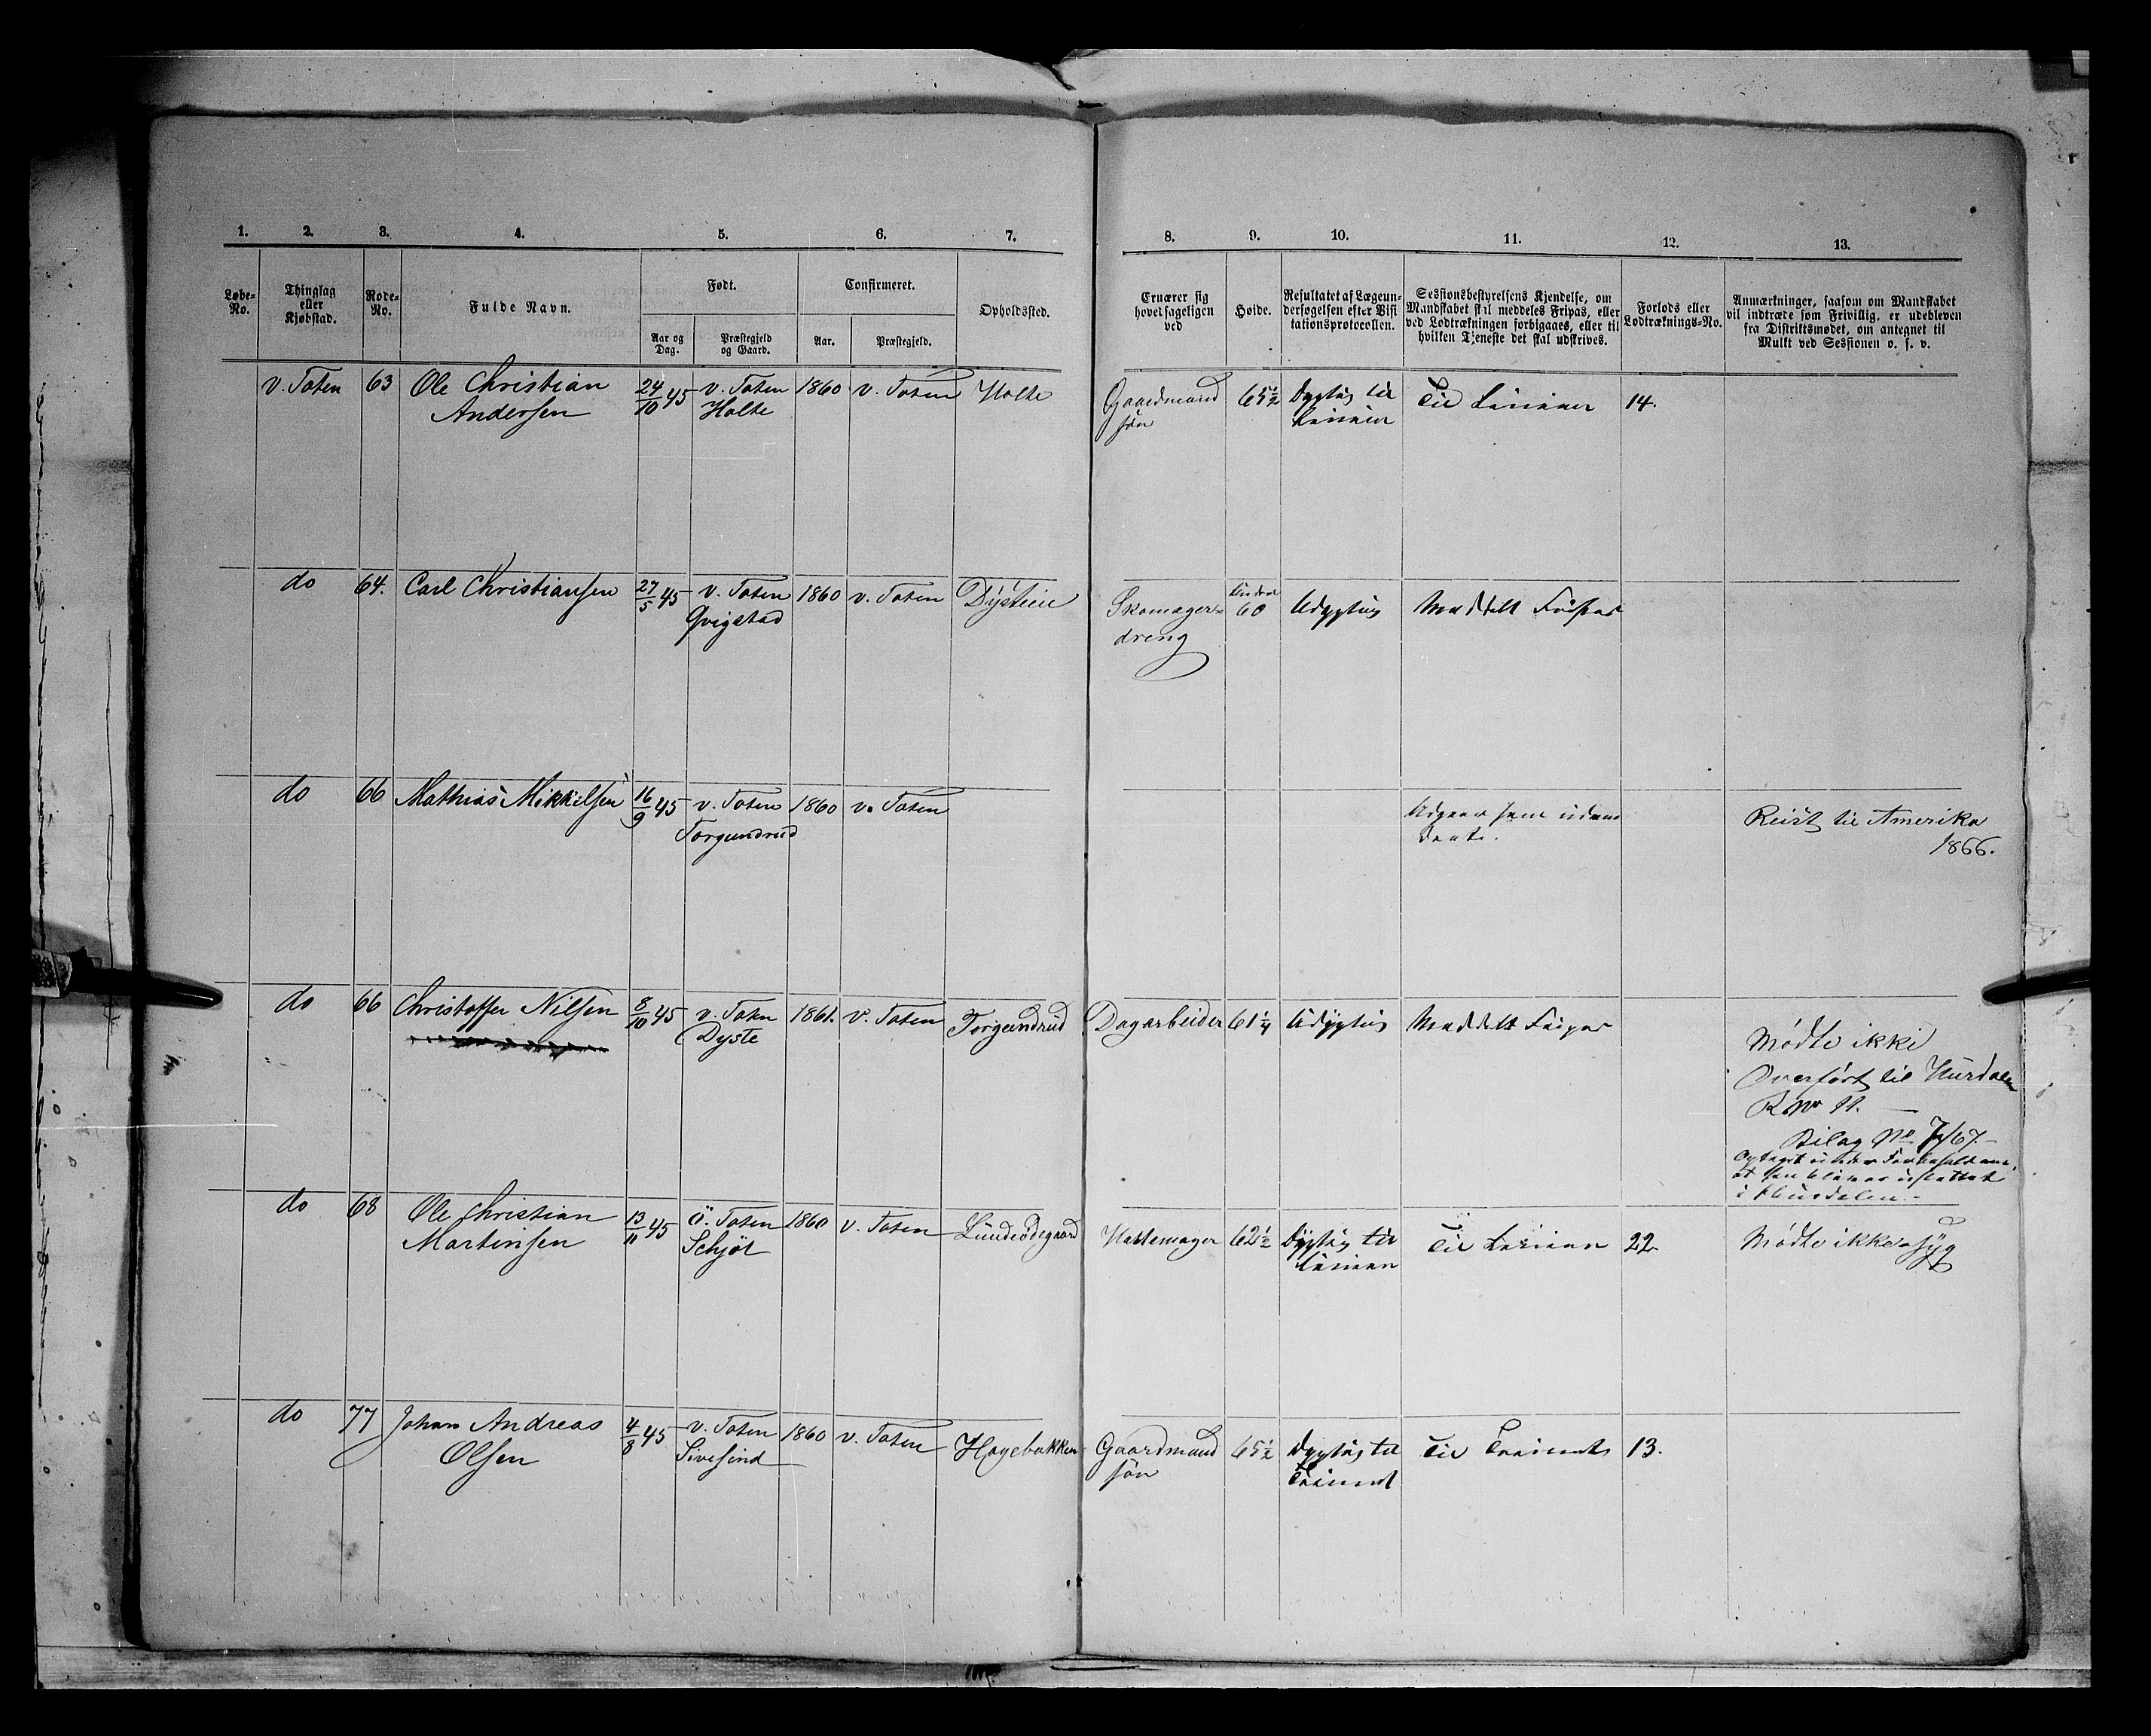 1. 2. 3. 4. 5. 6. 7. 8. 9. 10. 11. 12. 13.
Løbe-No.
Thinglag eller Kjøbstad.
Rode-No.
Fulde Navn.
Født.
Aar og Dag.
Præstegjeld og Gaard.
Confirmeret.
Aar.
Præstegjeld.
Opholdssted.
Ernærer sig hovedsageligen ved
Høide.
Resultatet af Lægeundersøgelsen efter Visitationsprotocollen.
Sessionsbestyrelsens Kjendelse, om Mandskabet skal meddeles Fripas, eller ved Lodtrækningen forbigaaes, eller til hvilken Tjeneste det skal udskrives.
Forlods eller Lodtræknings-No.
Anmærkninger, saasom om Mandskabet vil indtræde som Frivillig, er udebleven fra Distriktsmødet, om antegnet til Mulkt ved Sessionen o. s. v.
v. Toten 63 Ole Christian 24/10 45 v. Toten 1860 v. Toten Holte Gaardmand 65½ Dygtig til Til Linien 14.
Andersen Holte søn Linien
do 64. Carl Christiansen 27/5 45 v. Toten 1860 v. Toten Dystein Skomager- under 60 Udygtig Meddelt Fripas
Qvigstad dreng
do 66 Mathias Mikkelsen 16/9 45 v. Toten 1860 v. Toten Udgaar som uden Reist til Amerika
Torgundrud 1866.
do 66 Christoffer Nilsen 8/10 45 v. Toten 1861. v. Toten Torgundrud Dagarbeider 61¼ Udygtig Meddelt Fripas
Dyste Mødte ikke
Overført til Hurdalen
R No 11.
Bilag No 7/67.
i Hurdalen.
do 68 Ole Christian 13/11 45 Ö. Toten 1860 v. Toten Lundeødegaard 62½ Dygtig til Til Linien 22. Mødte ikke syg
Martinsen Schjøl Linien
do 77 Johan Andreas 4/8 45 v. Toten 1860 v. Toten Hagebakken Gaardmand 65½ Dygtig til Til Trainet 13.
Olsen Sivesind søn Trainet